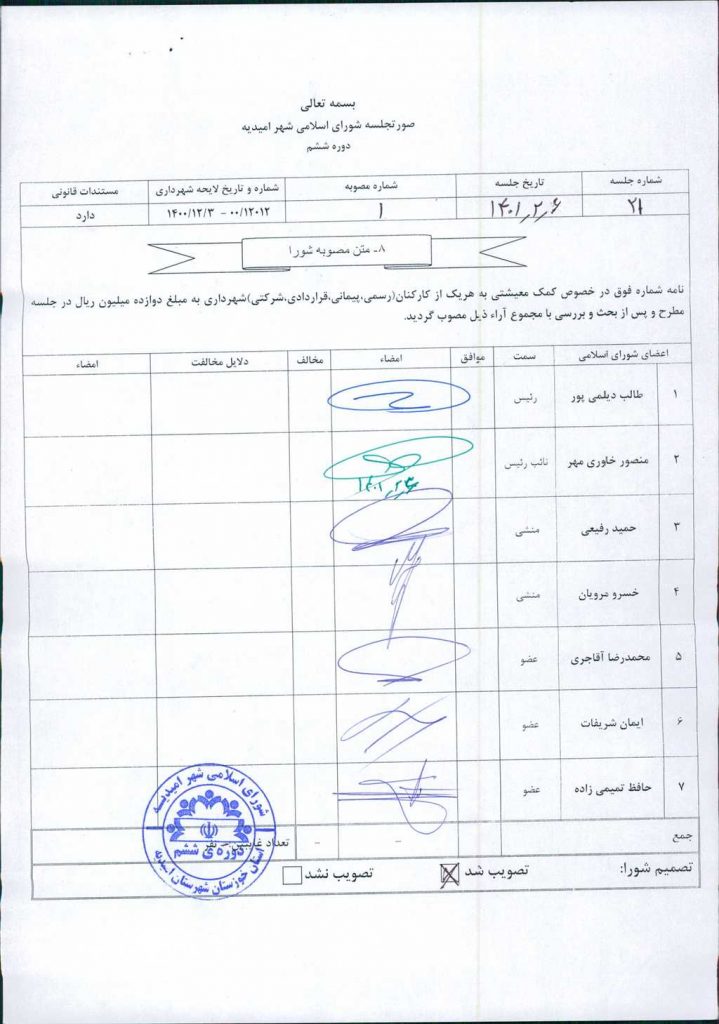 بسمه تعالی
صورتجلسه شورای اسلامی شهر امیدیه
دوره ششم
شماره جلسه تاریخ جلسه شماره مصوبه شماره و تاریخ لایحه شهرداری مستندات قانونی
۲۱ ۱۴۰۱,۲,۶ ۱ ۰۰/۱۲۰۱۲ – ۱۴۰۰/۱۲/۳ دارد
۸- متن مصوبه شورا
نامه شماره فوق در خصوص کمک معیشتی به هریک از کارکنان(رسمی،پیمانی،قراردادی،شرکتی)شهرداری به مبلغ دوازده میلیون ریال در جلسه
مطرح و پس از بحث و بررسی با مجموع آراء ذیل مصوب گردید.
اعضای شورای اسلامی سمت موافق امضاء مخالف دلایل مخالفت امضاء
۱ طالب دیلمی پور رئیس
۲ منصور خاوری مهر نائب رئیس ۱۴۰۱,۲,۶
۳ حمید رفیعی منشی
۴ خسرو مرویان منشی
۵ محمدرضا آقاجری عضو
۶ ایمان شریفات عضو
۷ حافظ تمیمی زاده عضو
جمع – – تعداد غائبین – نفر
تصمیم شورا: تصویب شد تصویب نشد
شورای اسلامی شهر امیدیه
دوره ی ششم
استان خوزستان شهرستان امیدیه